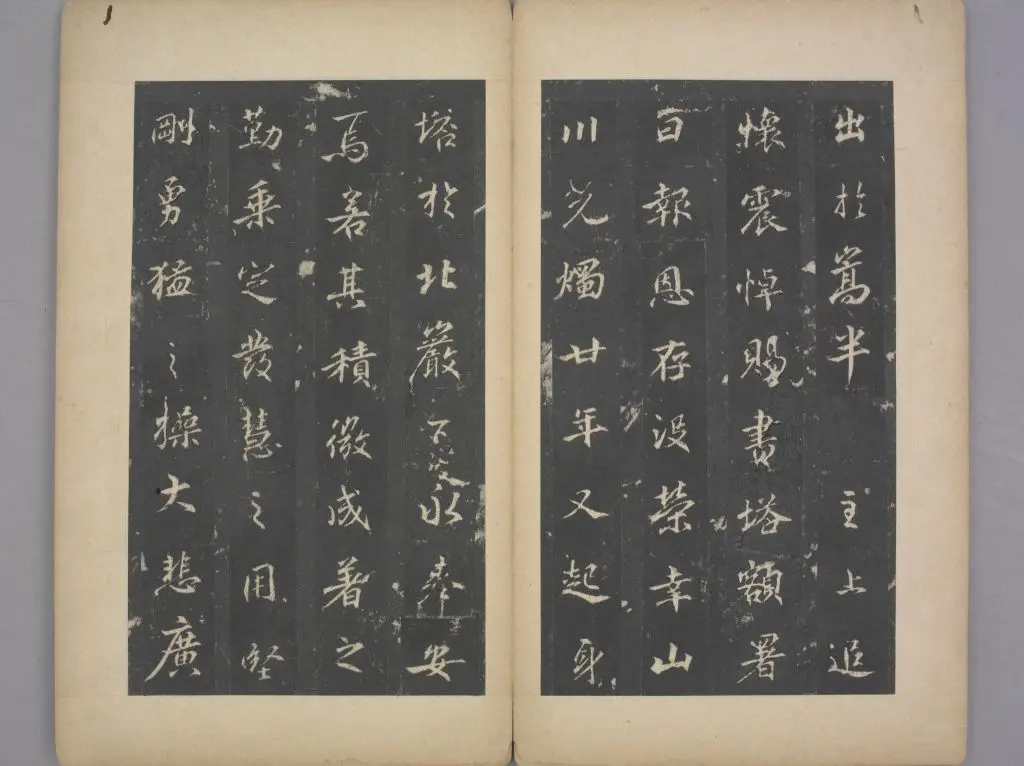 出於嵩半 主上追
懷震悼賜書塔額署
曰報恩存沒榮幸山
川光燭廿年又起身
塔於北巖下永奉安
焉若其積微成著之
勤乘定發慧之用堅
剛勇猛之操大悲廣